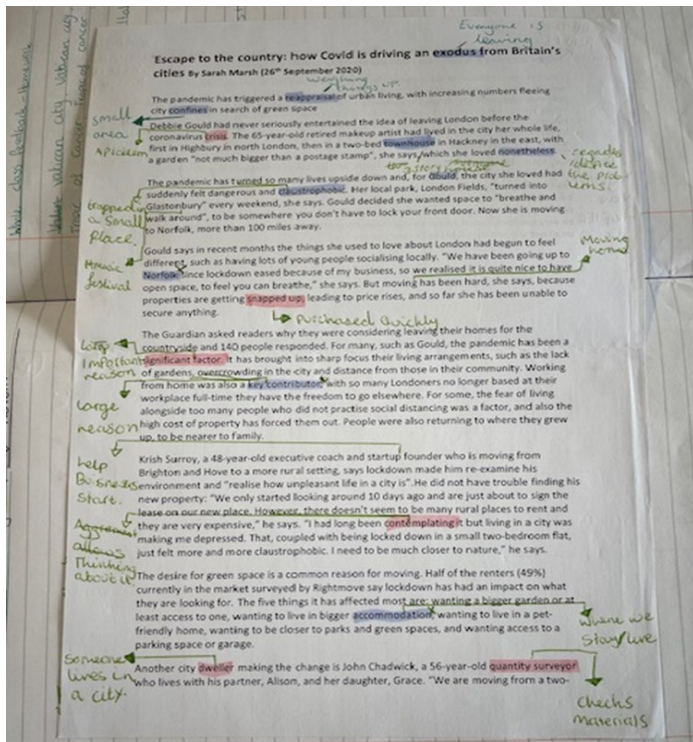 Everyone is
leaving
Escape to the country: how Covid is driving an exodus from Britain's
cities By Sarah Marsh (26th September 2020)
weighing
things up
The pandemic has triggered a reappraisal of urban living, with increasing numbers fleeing
city confines in search of green space
small
area
Debbie Gould had never seriously entertained the idea of leaving London before the
coronavirus crisis. The 65-year-old retired makeup artist had lived in the city her whole life,
first in Highbury in north London, then in a two-bed townhouse in Hackney in the east, with
a garden "not much bigger than a postage stamp", she says, which she loved nonetheless.
The pandemic has turned so many lives upside down and, for Gould, the city she loved had
suddenly felt dangerous and claustrophobic. Her local park, London Fields, "turned into
Glastonbury" every weekend, she says. Gould decided she wanted space to "breathe and
walk around", to be somewhere you don't have to lock your front door. Now she is moving
to Norfolk, more than 100 miles away.
the prob-
lems.
trapped in
a small
place.
Music
festival
Gould says in recent months the things she used to love about London had begun to feel
different, such as having lots of young people socialising locally. "We have been going up to
Norfolk since lockdown eased because of my business, so we realised it is quite nice to have
open space, to feel you can breathe," she says. But moving has been hard, she says, because
properties are getting snapped up, leading to price rises, and so far she has been unable to
secure anything.
Moving
home
Purchased quickly
The Guardian asked readers why they were considering leaving their homes for the
countryside and 140 people responded. For many, such as Gould, the pandemic has been a
significant factor. It has brought into sharp focus their living arrangements, such as the lack
of gardens, overcrowding in the city and distance from those in their community. Working
from home was also a key contributor, with so many Londoners no longer based at their
workplace full-time they have the freedom to go elsewhere. For some, the fear of living
alongside too many people who did not practise social distancing was a factor, and also the
high cost of property has forced them out. People were also returning to where they grew
up, to be nearer to family.
Important
reason
large
reason
Krish Surroy, a 48-year-old executive coach and startup founder who is moving from
Brighton and Hove to a more rural setting, says lockdown made him re-examine his
environment and "realise how unpleasant life in a city is". He did not have trouble finding his
new property: "We only started looking around 10 days ago and are just about to sign the
lease on our new place. However, there doesn't seem to be many rural places to rent and
they are very expensive," he says. "I had long been contemplating it but living in a city was
making me depressed. That, coupled with being locked down in a small two-bedroom flat,
just felt more and more claustrophobic. I need to be much closer to nature," he says.
help
Business
Start.
Agreement
allows
Thinking
about it
The desire for green space is a common reason for moving. Half of the renters (49%)
currently in the market surveyed by Rightmove say lockdown has had an impact on what
they are looking for. The five things it has affected most are: wanting a bigger garden or at
least access to one, wanting to live in bigger accommodation, wanting to live in a pet-
friendly home, wanting to be closer to parks and green spaces, and wanting access to a
parking space or garage.
where we
Stay/live
Someone
lives in
a city.
Another city dweller making the change is John Chadwick, a 56-year-old quantity surveyor
who lives with his partner, Alison, and her daughter, Grace. "We are moving from a two-
checks
materials